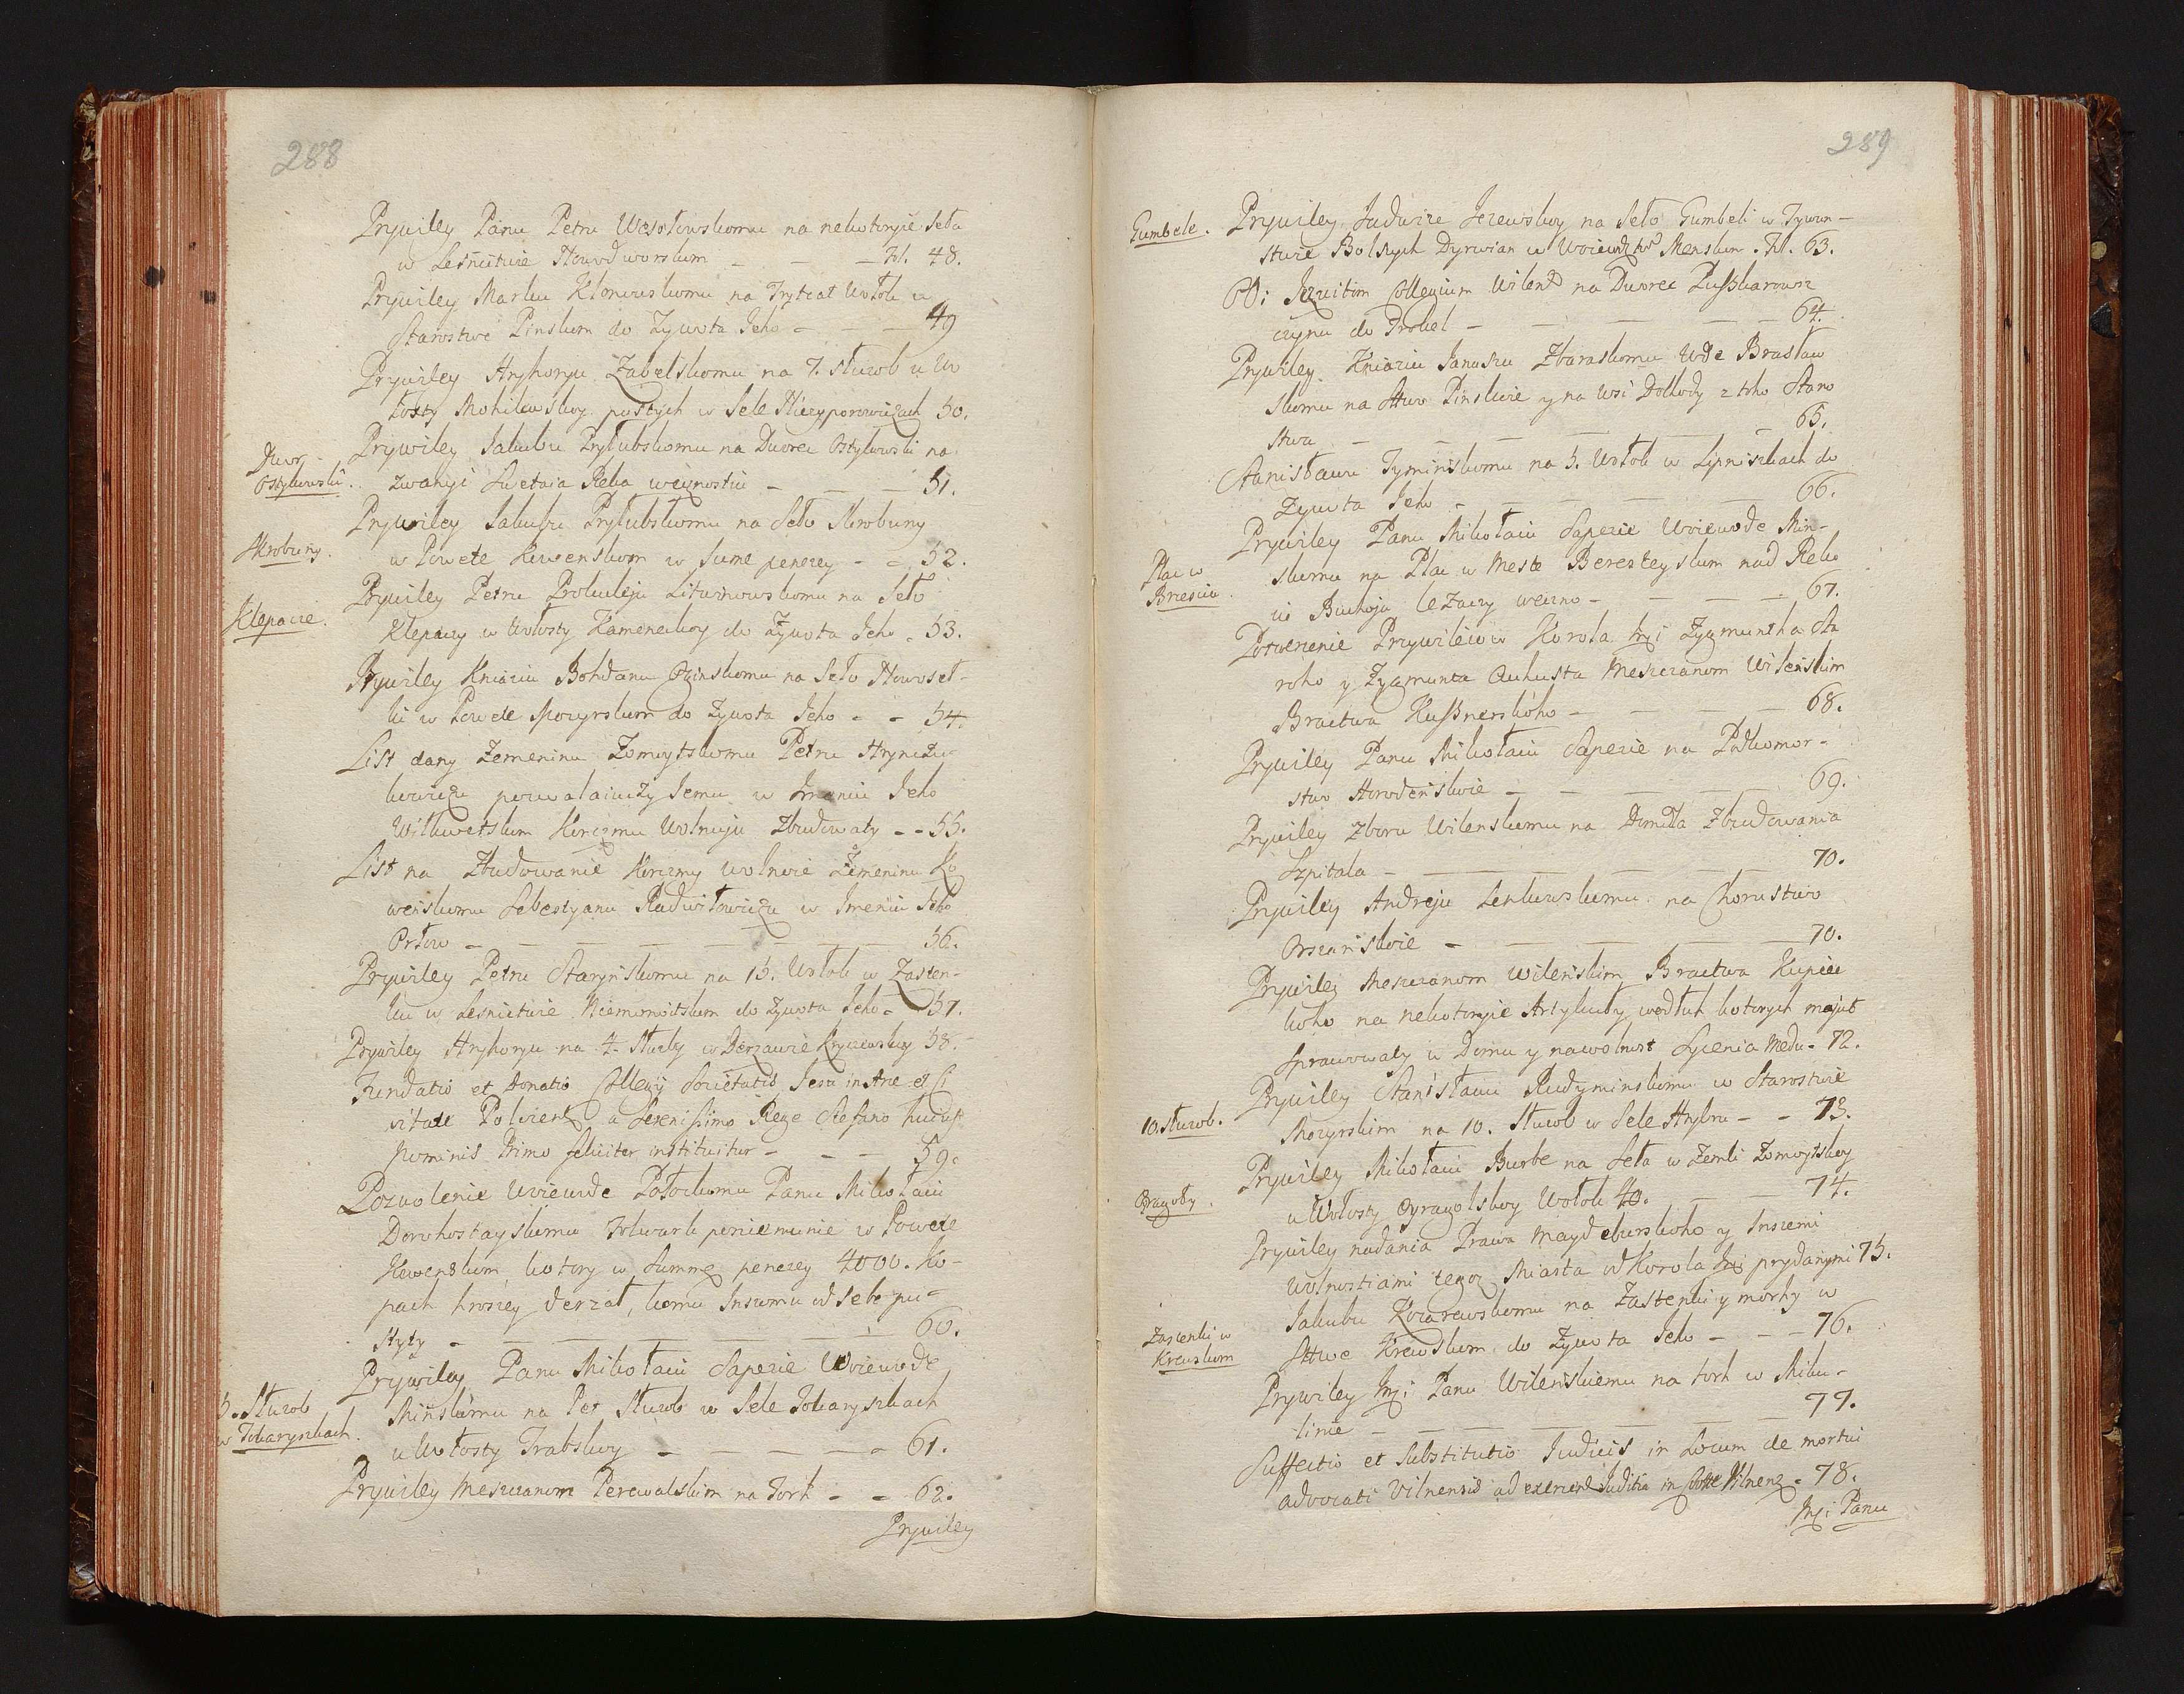 288
Prywiley Panu Petru Wesołowskomu na nekotoryie Seła
w Leśnictwie Nowodworskom — — — Fol. 48.
Prywiley Marku Klonowskomu na Trytcat Wołok w
Starostwe Pinskom do Zywota Jeho — — — 49
Prywiley Hryhoryu Zabelskomu na 7. Słuzob u Wo
łosty Mohilewskoy pustych w Sele Niczyporowiczach 50.
Dwor
Ostykowski.
Prywiley Jakubu Prytubskomu na Dworec Ostykowski na
zwanyi Swetaia Reka wecznostiu — — — 51.
Skrobuny.
Prywiley Jakubu Prytubskomu na Seło Skrobuny
w Powete Kowenskom w Sume penezey - - 52.
Klepacze.
Prywiley Petru Prokuleju Liturowskomu na Seło
Klepaczy w Wołosty Kameneckoy do Zywota Jeho - 53.
Prywiley Kniaziu Bohdanu Oginskomu na Seło Nowoseł-
ki w Powete Mozyrskom do Zywota Jeho - - 54.
List dany Zemeninu Zomoytskomu Petru Hrynczu-
kowiczu pozwalaiuczy Jemu w Imeniu Jeho
Wilkowetskom Korczmu Wolnuju Zbudowaty - - 55.
List na Zbudowanie Korczmy wolnoie Zemeninu Ko
wenskomu Sebestyanu Radwiłowiczu w Imeniu Jeho
Orłow — — — — — — — 56.
Prywiley Petru Starynskomu na 15. Wołok w Zasten-
ku w Lesnictwie Niemonoitskom do Zywota Jeho - 57.
Prywiley Hryhoryu na 4. Służby w Derzawie Kryczewskoy 58.
Fundatio et Donatio Collegij Societatis Jesu in Arce et Ci
vitate Polocens a Serenissimo Rege Stefano hujus
nominis Primo feliciter instituitur - — — 59.
Pozwolenie Woiewode Połockomu Panu Mikołaiu
Dorohostayskomu Folwark poniemunie w Powete
Kowenskom, kotory w Summe penezey 4000. Ko-
pach hroszey derzał, komu Inszomu od Sebe pu-
styty — — — — — — 60.
5. Słuzob
w Tokaryszkach.
Prywiley Panu Mikołaiu Sapezie Woiewode
Minskomu na Pet Słuzob w Sele Tokaryszkach
u Wołosty Trabskoy — — — — — 61.
Prywiley Meszczanom Perewalskim na Torh - - 62.
Prywiley
289
Gumbele.
Prywiley Jadwize Jezewskoy na Seło Gumbeli w Tywun-
stwie Bolszych Dyrwian w Woiewdztwe Menskom. Fol. 63.
OO: Jezuitom Collegium Wilens na Dworec Puszkarowsz
czynu do Probel — — — — — 64.
Prywiley Kniaziu Januszu Zbaraskomu Wde Brasław
skomu na Sttwo Pinskoie y na Wsi Dolhody z toho Staro
stwa — — — — — 65.
Stanisławu Tyminskomu na 5. Wołok w Lipniszkach do
Zywota Jeho — — — — — 66.
Plac w
Brzesciu
Prywiley Panu Mikołaiu Sapezie Woiewode Min-
skomu na Plac w Meste Beresteyskom nad Reko
iu Buhoju lezaczy weczno — — — — 67.
Potwerzenie Przywileiow Korola Imci Zygmuntha Sta
roho y Zygmunta Auhusta Meszczanom Wilenskim
Bractwa Kusznerskoho — — — — 68.
Prywiley Panu Mikołaiu Sapezie na Podkomor-
stwo Horodenskoie — — — — — 69.
Prywiley Zboru Wilenskomu na Dom dla Zbudowania
Szpitala — — — — — — 70.
Prywiley Andreju Lenkowskomu na Chorustwo
Orszanskoie — — — — — 70.
Prywiley Meszczanom Wilenskim Bractwa Kupiec
koho na nekotoryie Artykuły wedłuh kotorych majut
sprawowaty u Domu y na wolnost Sycenia Medu - 72.
10. Słuzob.
Prywiley Stanisławu Rudyminskomu w Starostwie
Mozyrskim na 10. Słuzob w Sele Hrybru - - 73.
Oyragoły.
Prywiley Mikołaiu Burbe na Seła w Zemli Zomoytskoy
u Wołosty Oyragolskoy Wołok 40. — — 74.
Prywiley nadania Prawa Maydeburskoho y Inszemi
Wolnostiami tegoz Miasta od Korola Imci prydanymi 75.
Zascenki w
Krewskom
Jakubu Kozarewskomu na Zastenki y morhy w
Sttwe Krewskom do Zywota Jeho - - - 76.
Prywiley Imci Panu Wilenskiemu na torh w Miku-
linie — — — — — — 77.
Suffectio et Substitutio Judicis in Locum de mortui
advocati Vilnensis ad exercend Juditia in Vilnens - 78.
Imci Panu